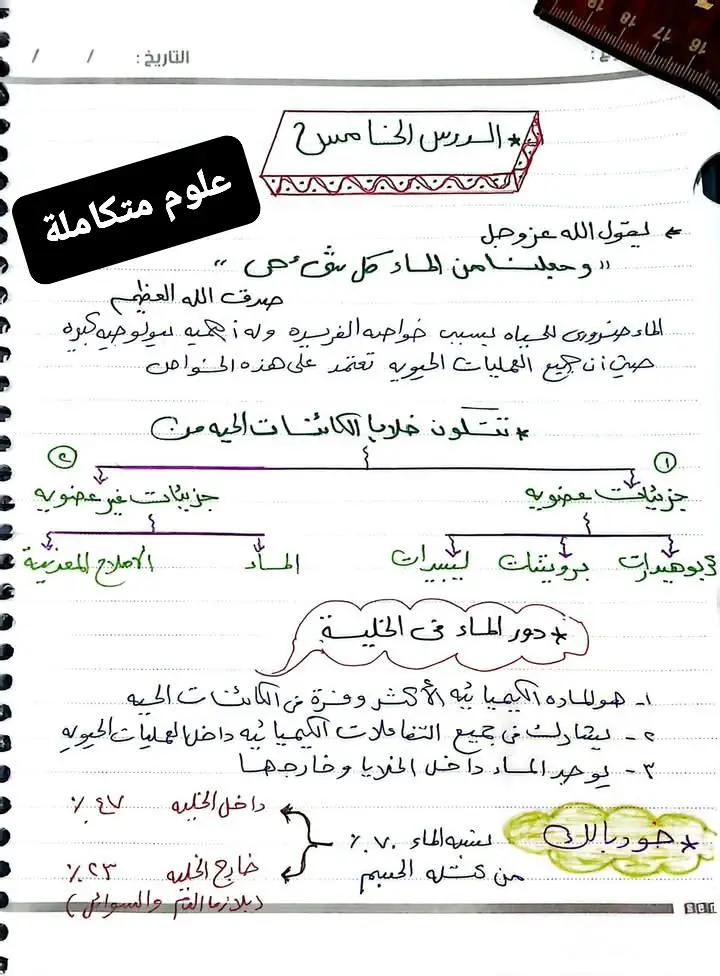 التاريخ: / /
* الدرس الخامس
علوم متكاملة
← يقول الله عز وجل
"وجعلنا من الماء كل شيء حي"
صدق الله العظيم
الماء ضروري للحياه بسبب خواصه الفريده وله أهميه بيولوجيه كبيره
حيث أن جميع العمليات الحيويه تعتمد على هذه الخواص
* تتكون خلايا الكائنات الحيه من
١ ٢
جزيئات عضويه جزيئات غير عضويه
كربوهيدرات بروتينات ليبيدات الماء الاملاح المعدنية
* دور الماء فى الخلية
١- هو الماده الكيميائيه الأكثر وفرة فى الكائنات الحيه
٢- يشارك فى جميع التفاعلات الكيميائيه داخل العمليات الحيويه
٣- يوجد الماء داخل الخلايا وخارجها
* خد بالك
نسبه الماء ٧٠٪
من كتله الجسم
داخل الخليه ٤٧٪
خارج الخليه ٢٣٪
(بلازما الدم والسوائل)